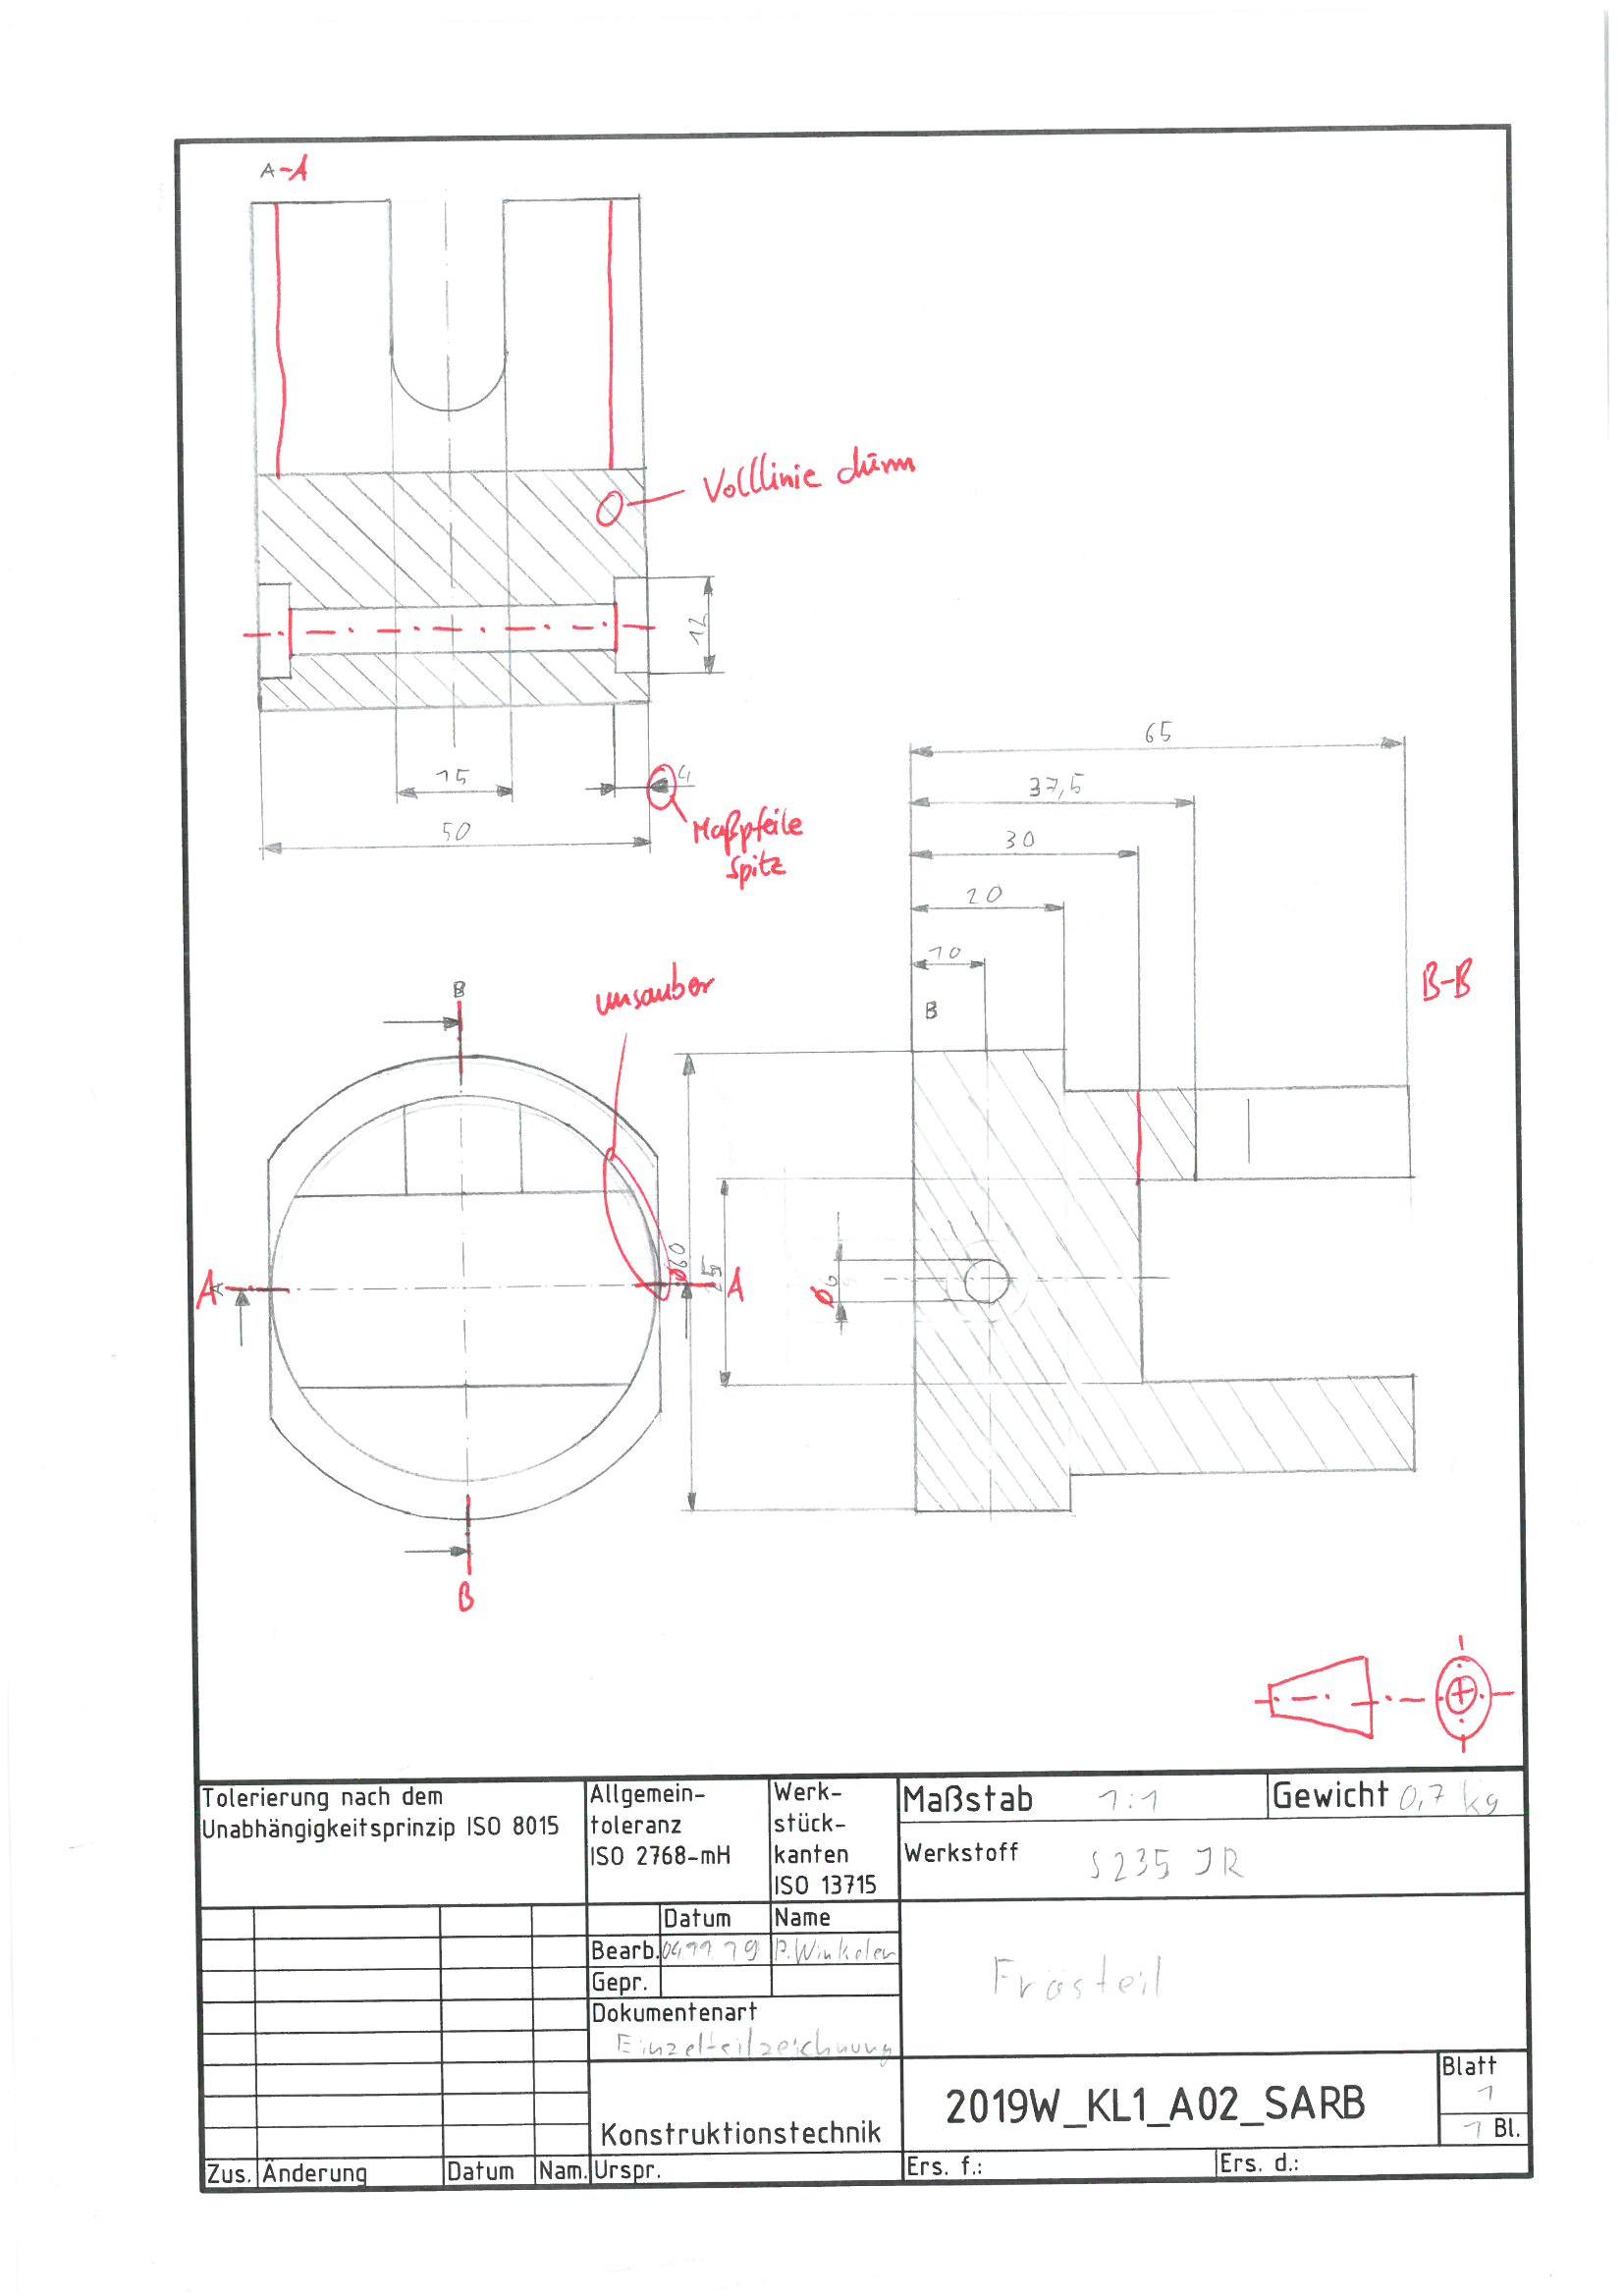 A-A
Volllinie dünn
12
15
4
50
Maßpfeile
spitz
65
37,5
30
20
10
B
B-B
unsauber
B
A
A
⌀60
25
A
⌀6
B
Tolerierung nach dem
Unabhängigkeitsprinzip ISO 8015
Allgemein-
toleranz
ISO 2768-mH
Werk-
stück-
kanten
ISO 13715
Maßstab 1:1
Gewicht 0,7 kg
Werkstoff S235 JR
Datum Name
Bearb. 04.11.19 P. Winkeler
Gepr.
Dokumentenart
Einzelteilzeichnung
Frästeil
Konstruktionstechnik
2019W_KL1_A02_SARB
Blatt
1
1 Bl.
Zus. Änderung Datum Nam. Urspr. Ers. f.: Ers. d.: